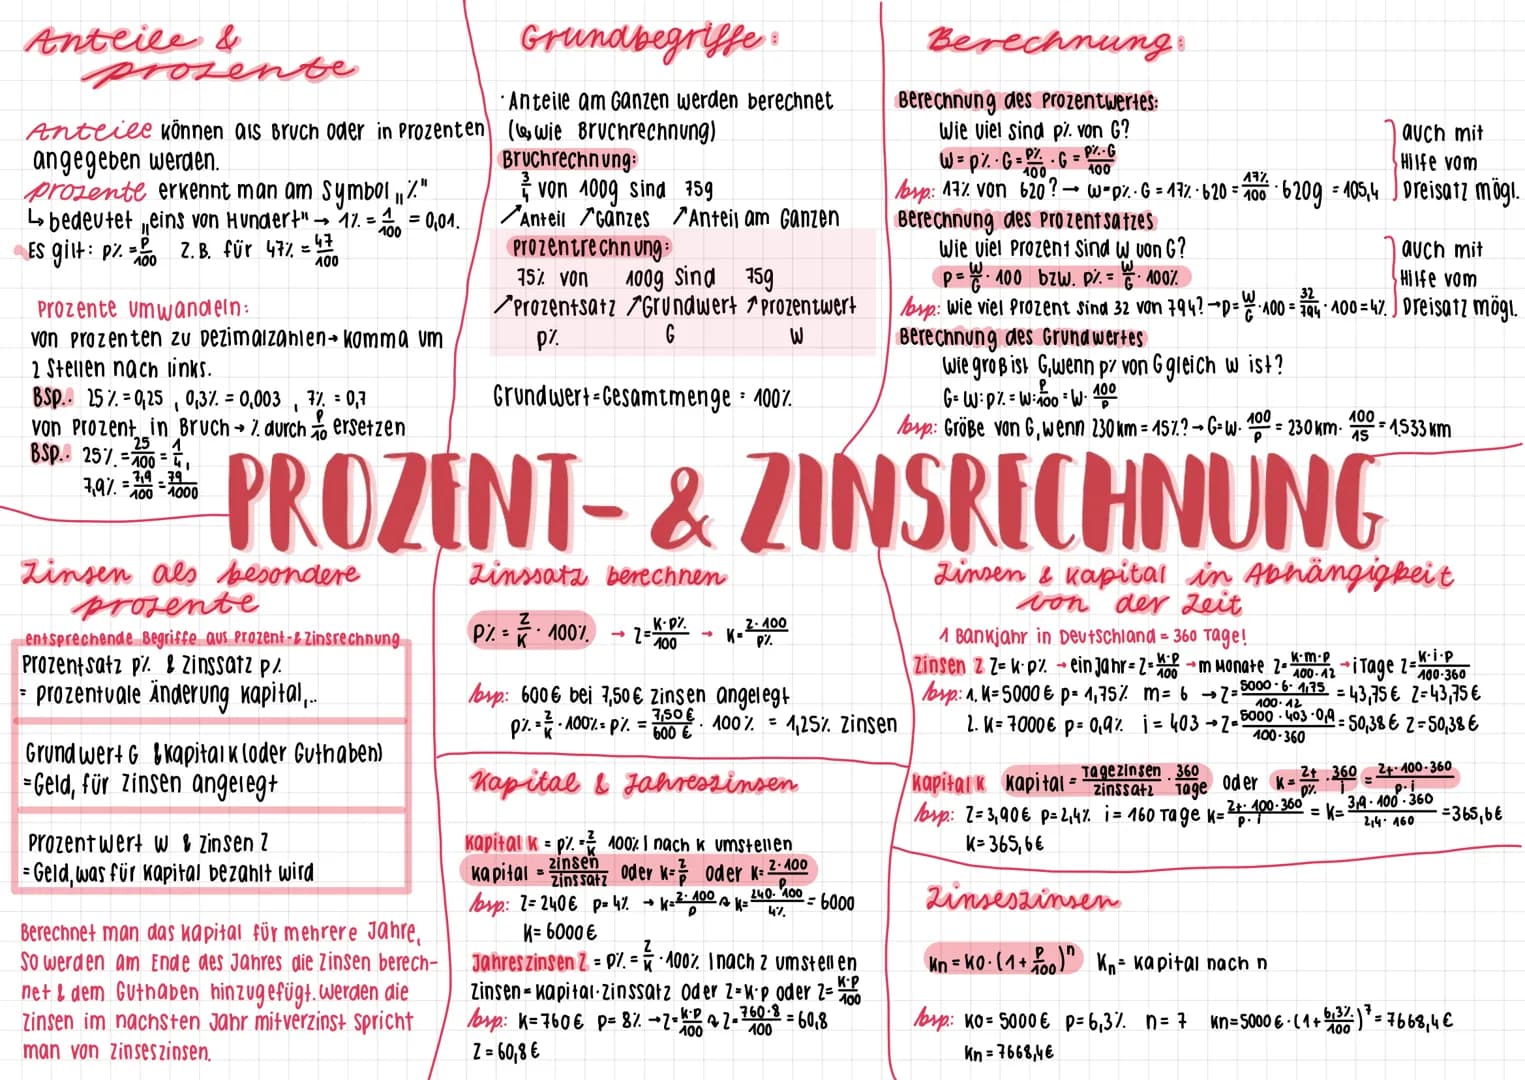 Anteile &
prozente
Anteile können als Bruch oder in Prozenten
angegeben werden.
prozente erkennt man am Symbol „%"
↳ bedeutet „eins von Hundert" → 1% = 1/100 = 0,01.
Es gilt: p% = p/100 Z.B. für 47% = 47/100
Prozente umwandeln:
von Prozenten zu Dezimalzahlen → Komma um
2 Stellen nach links.
BSP.: 25% = 0,25 , 0,3% = 0,003 , 7% = 0,7
von Prozent in Bruch → % durch p/10 ersetzen
BSP.: 25% = 25/100 = 1/4,
7,9% = 7,9/100 = 79/1000
Grundbegriffe:
· Anteile am Ganzen werden berechnet
(↳ wie Bruchrechnung)
Bruchrechnung:
3/4 von 100g sind 75g
↗Anteil ↗Ganzes ↗Anteil am Ganzen
Prozentrechnung:
75% von 100g sind 75g
↗Prozentsatz ↗Grundwert ↗Prozentwert
p% G W
Grundwert = Gesamtmenge = 100%
Berechnung:
Berechnung des Prozentwertes:
Wie viel sind p% von G?
W = p% · G = p%/100 · G = p%·G/100
bsp: 17% von 620? → W = p% · G = 17% · 620 = 17%/100 · 620g = 105,4
auch mit
Hilfe vom
Dreisatz mögl.
Berechnung des Prozentsatzes
Wie viel Prozent sind W von G?
p = W/G · 100 bzw. p% = W/G · 100%
bsp: Wie viel Prozent sind 32 von 794? → p = W/G · 100 = 32/794 · 100 = 4%
auch mit
Hilfe vom
Dreisatz mögl.
Berechnung des Grundwertes
Wie groß ist G, wenn p% von G gleich W ist?
G = W : p% = W : p/100 = W · 100/p
bsp: Größe von G, wenn 230km = 15%? → G = W · 100/p = 230km · 100/15 = 1533km
PROZENT- & ZINSRECHNUNG
Zinsen als besondere
prozente
entsprechende Begriffe aus Prozent- & Zinsrechnung
Prozentsatz p% & Zinssatz p%
= prozentuale Änderung Kapital,..
Grundwert G & Kapital K (oder Guthaben)
= Geld, für Zinsen angelegt
Prozentwert W & Zinsen Z
= Geld, was für Kapital bezahlt wird
Berechnet man das Kapital für mehrere Jahre,
so werden am Ende des Jahres die Zinsen berech-
net & dem Guthaben hinzugefügt. Werden die
Zinsen im nächsten Jahr mitverzinst spricht
man von Zinseszinsen.
Zinssatz berechnen
P% = Z/K · 100% → Z = K·p%/100 → K = Z·100/p%
bsp: 600€ bei 7,50€ Zinsen angelegt
p% = Z/K · 100% = p% = 7,50€/600€ · 100% = 1,25% Zinsen
Kapital & Jahreszinsen
Kapital K = p% = Z/K 100% | nach K umstellen
Kapital = Zinsen/Zinssatz oder K = Z/p oder K = Z·100/p
bsp: Z = 240€ p = 4% → K = Z·100/p ↷ K = 240·100/4% = 6000
K = 6000€
Jahreszinsen Z = p% = Z/K · 100% | nach Z umstellen
Zinsen = Kapital · Zinssatz oder Z = K·p oder Z = K·p/100
bsp: K = 760€ p = 8% → Z = K·p/100 ↷ Z = 760·8/100 = 60,8
Z = 60,8€
Zinsen & Kapital in Abhängigkeit
von der Zeit
1 Bankjahr in Deutschland = 360 Tage!
Zinsen Z Z = K·p% → ein Jahr = Z = K·p/100 → m Monate Z = K·m·p/100·12 → i Tage Z = K·i·p/100·360
bsp: 1. K = 5000€ p = 1,75% m = 6 → Z = 5000·6·1,75/100·12 = 43,75€ Z = 43,75€
2. K = 7000€ p = 0,9% i = 403 → Z = 5000·403·0,9/100·360 = 50,38€ Z = 50,38€
Kapital K Kapital = Tagezinsen/Zinssatz · 360/Tage oder K = Zt/p% · 360/i = Zt·100·360/p·i
bsp: Z = 3,90€ p = 2,4% i = 160 Tage K = Zt·100·360/p·i = K = 3,9·100·360/2,4·160 = 365,6€
K = 365,6€
Zinseszinsen
Kn = K0 · (1 + p/100)ⁿ Kn = Kapital nach n
bsp: K0 = 5000€ p = 6,3% n = 7 Kn = 5000€ · (1 + 6,3%/100)⁷ = 7668,4€
Kn = 7668,4€